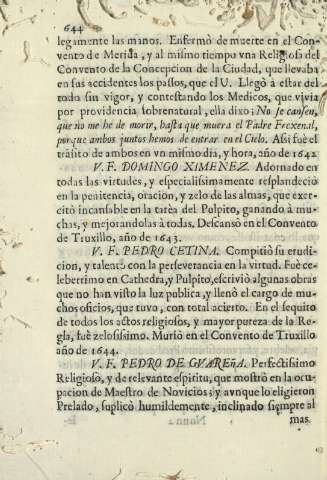 644
legamente las manos. Enfermò de muerte en el Con-
vento de Merida, y al mismo tiempo vna Religiosa del
Convento de la Concepcion de la Ciudad, que llevaba
en sus accidentes los passos, que el V. Llegò à estar del
todo sin vigor, y contestando los Medicos, que vivia
por providencia sobrenatural, ella dixo; No se cansen,
que no me he de morir, hasta que muera el Padre Frexenal,
porque ambos juntos hemos de entrar en el Cielo. Assi fuè el
trãsito de ambos en vn mismo dia, y hora, año de 1642
V. F. DOMINGO XIMENEZ. Adornado en
todas las virtudes, y especialissimamente resplandeciò
en la penitencia, oracion, y zelo de las almas, que exer-
citò incansable en la tarèa del Pulpito, ganando à mu-
chas, y mejorandolas à todas. Descansò en el Convento
de Truxillo, año de 1643.
V. F. PEDRO CETINA. Compitiò su erudi-
cion, y talento con la perseverancia en la virtud. Fuè ce-
leberrimo en Cathedra, y Pulpito, escriviò algunas obras
que no han visto la luz publica, y llenò el cargo de mu-
chos oficios, que tuvo, con total acierto. En el sequito
de todos los actos religiosos, y mayor pureza de la Re-
gla, fuè zelosissimo. Muriò en el Convento de Truxillo
año de 1644.
V. F. PEDRO DE GVAREñA. Perfectissimo
Religioso, y de relevante espiritu, que mostrò en la ocu-
pacion de Maestro de Novicios; y aunque lo eligieron
Prelado, suplicò humildemente, inclinado siempre al
mas